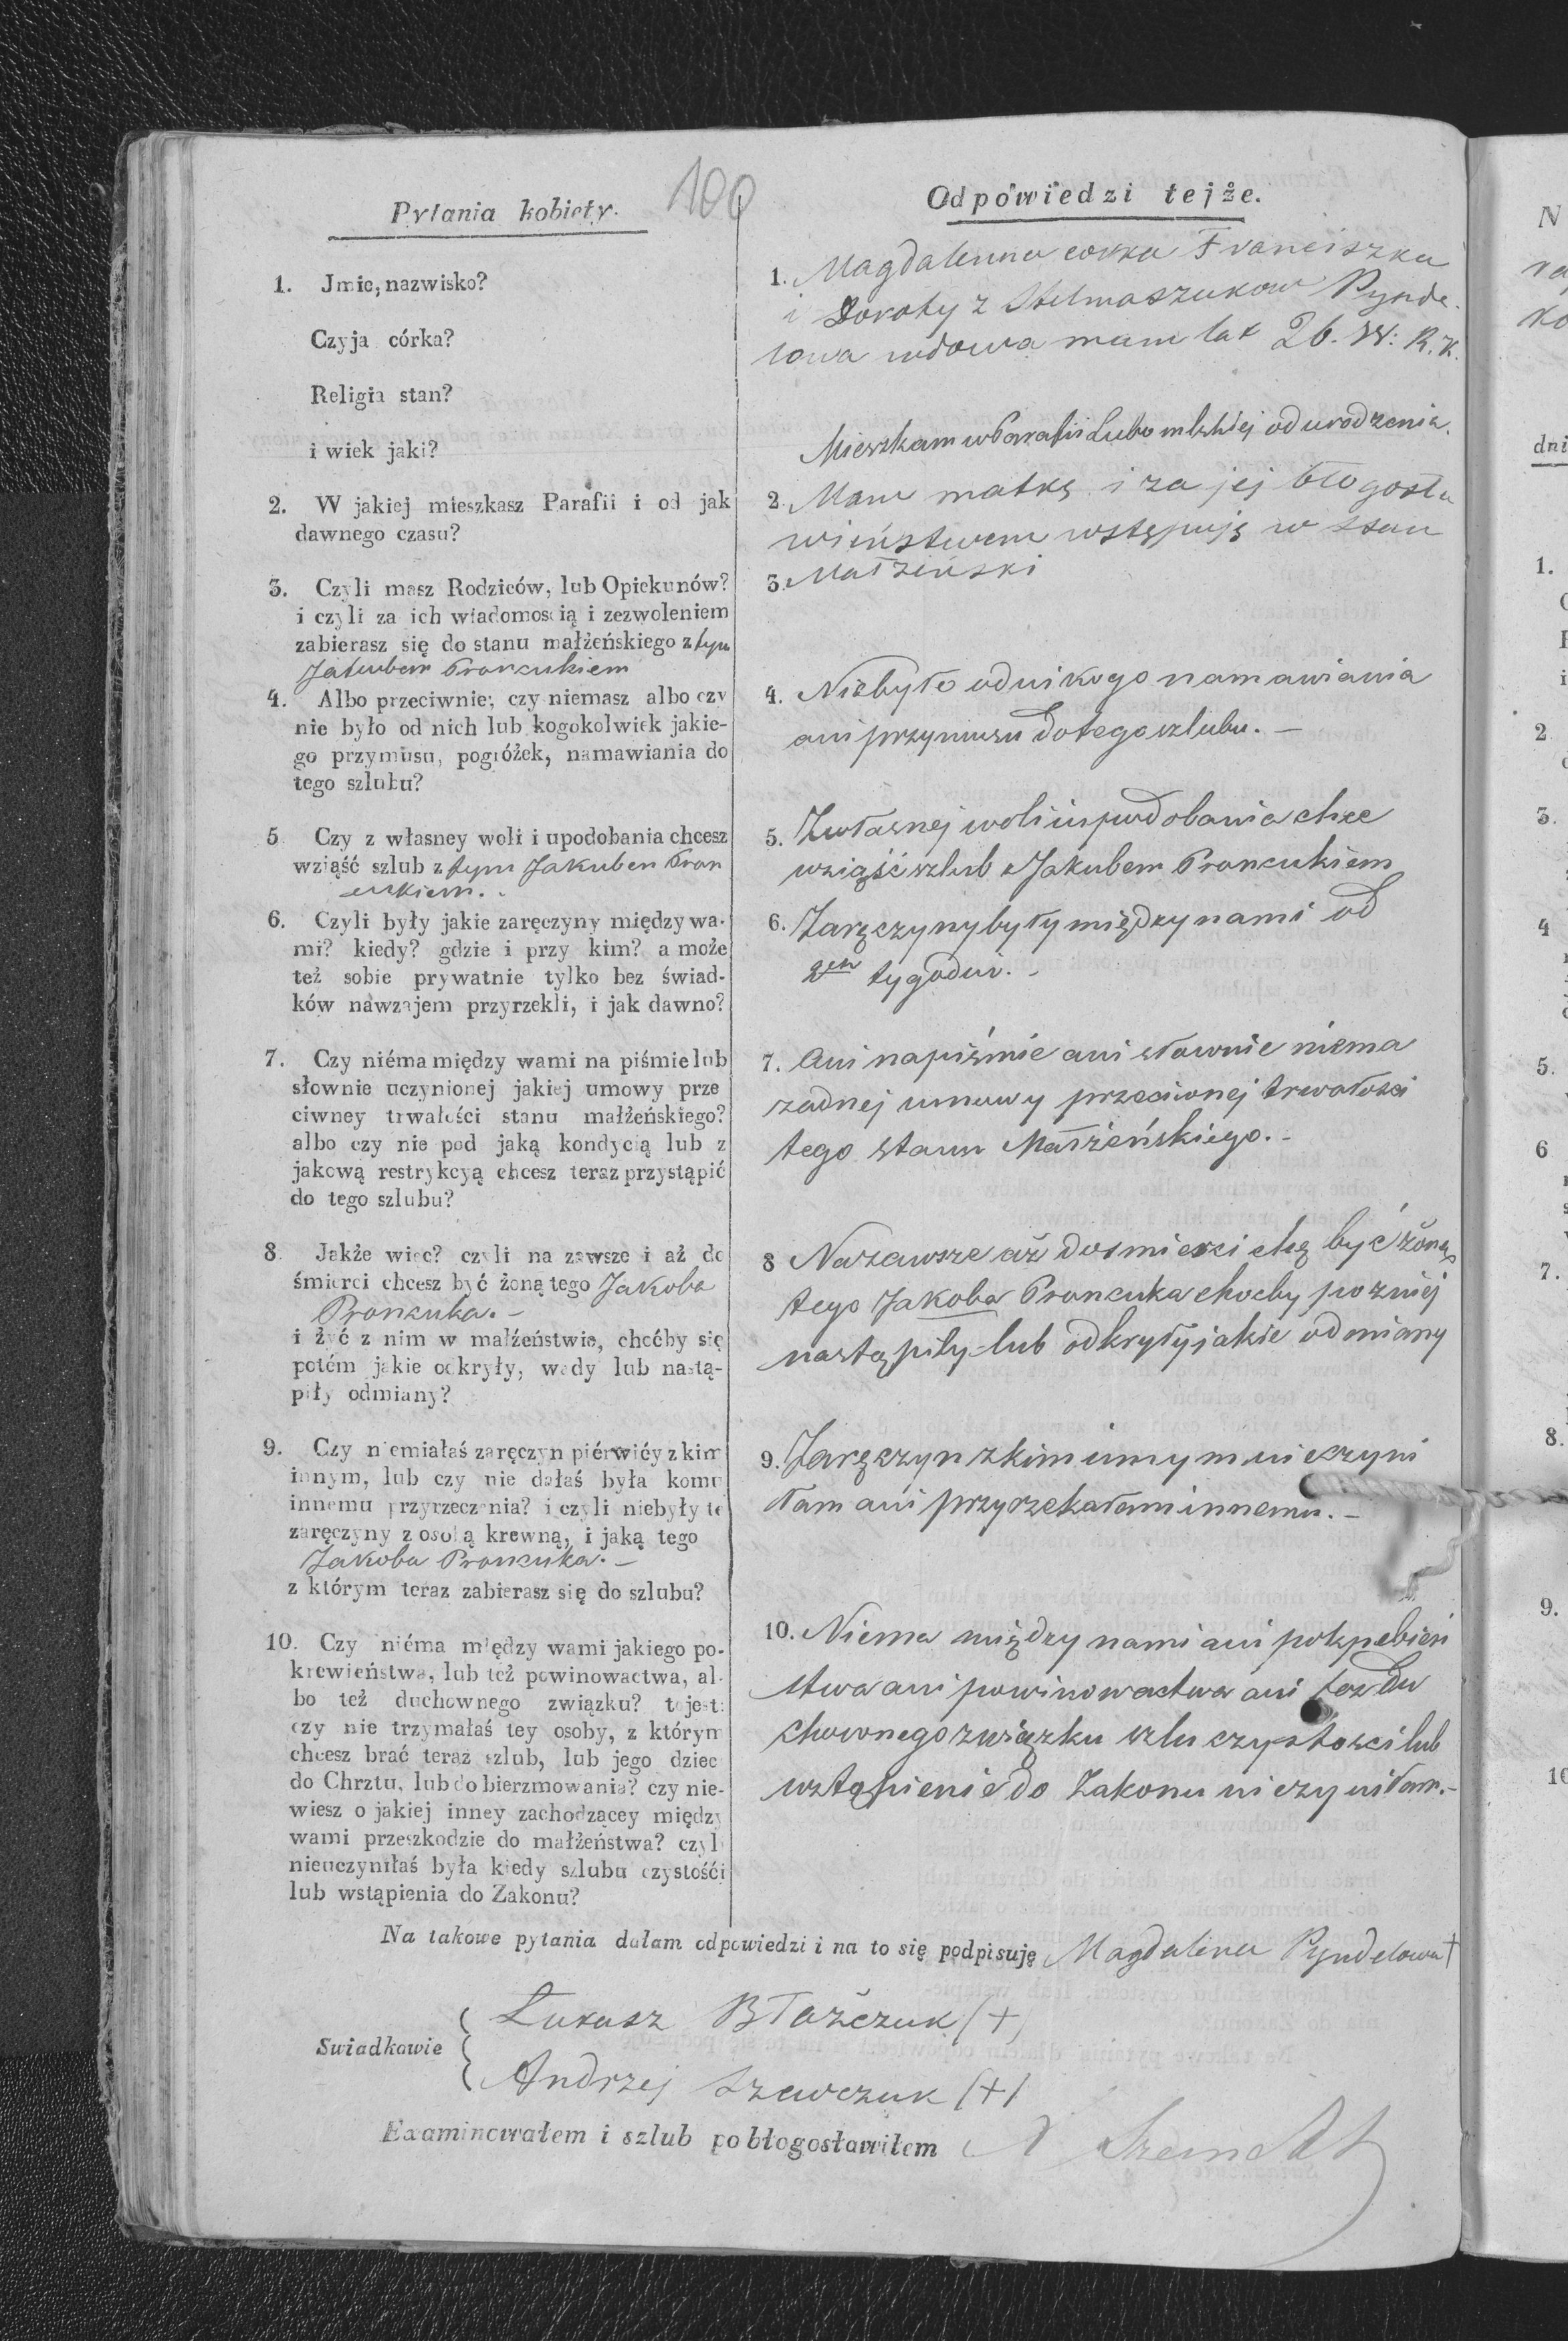 100
Pytania kobiety.
1. Jmie, nazwisko?
Czyja córka?
Religia stan?
i wiek jaki?
2. W jakiej mieszkasz Parafii i od jak
dawnego czasu?
3. Czyli masz Rodziców, lub Opiekunów?
i czyli za ich wiadomoscią i zezwoleniem
zabierasz się do stanu małżeńskiego z tym
Jakubem Proncukiem
4. Albo przeciwnie; czy niemasz albo czy
nie było od nich lub kogokolwiek jakie-
go przymusu, pogróżek, namawiania do
tego szlubu?
5 Czy z własney woli i upodobania chcesz
wziąść szlub z tym Jakubem Pron
cukiem.
6. Czyli były jakie zaręczyny między wa-
mi? kiedy? gdzie i przy kim? a może
też sobie prywatnie tylko bez świad-
ków nawzajem przyrzekli, i jak dawno?
7. Czy niéma między wami na piśmie lub
słownie uczynionej jakiej umowy prze
ciwney trwałości stanu małżeńskiego?
albo czy nie pod jaką kondycią lub z
jakową restrykcyą chcesz teraz przystąpić
do tego szlubu?
8 Jakże wiec? czyli na zawsze i aż do
śmierci chcesz być żoną tego Jakoba
Proncuka.-
i żyć z nim w małżeństwie, choćby się
potém jakie odkryły, wady lub nastą-
piły odmiany?
9. Czy niemiałaś zaręczyn piérwićy z kim
innym, lub czy nie dałaś była komu
innemu przyrzeczenia? i czyli niebyły te
zaręczyny z osobą krewną, i jaką tego
Jakoba Proncuka.-
z którym teraz zabierasz się do szlubu?
10. Czy niéma między wami jakiego po-
krewieństwa, lub też powinowactwa, al-
bo też duchownego związku? to jest:
czy nie trzymałaś tey osoby, z którym
chcesz brać teraz szlub, lub jego dziec
do Chrztu, lub do bierzmowania? czy nie-
wiesz o jakiej inney zachodzącey między
wami przeszkodzie do małżeństwa? czyl
nieuczyniłaś była kiedy szlubu czystośći
lub wstąpienia do Zakonu?
Odpowiedzi tejże.
1. Magdalenna corka Franciszka
i Doroty z Stelmaszukow Pynde-
lowa wdowa mam lat 26. W: R. K.
Mieszkam w Parafii Lubomlskiej od urodzenia.
2. Mam matkę i za jej błogosła
wieństwem wstępuję w stan
3. Małżeński
4. Niebyło od nikogo namawiania
ani przymusu do tego szlubu.-
5. Z własnej woli i upodobania chce
wziąść szlub z Jakubem Proncukiem
6. Zaręczyny były między nami od
2ch tygodni.-
7. Ani napiśmie ani słownie niema
żadnej umowy przeciwnej trwałości
tego stanu Małżeńskiego.-
8 Nazawsze aż do śmierci chcę być żoną
tego Jakoba Proncuka choćby pozniej
nastąpiły lub odkryły jakie odmiany
9. Zaręczyn z kim innym nieczyni
łam ani przyrzekałam innemu.-
10. Niema między nami ani
stwa ani powinowactwa ani tez Du
chownego związku szlu czystosci lub
wstąpienie do Zakonu nie czyniłam.-
Na takowe pytania dałam odpowiedzi i na to się podpisuję Magdalena Pyndelowa +
Swiadkowie
Łukasz Błażczuk (+)
Andrzej Szewczuk (+)
Examinowałem i szlub pobłogosławiłem